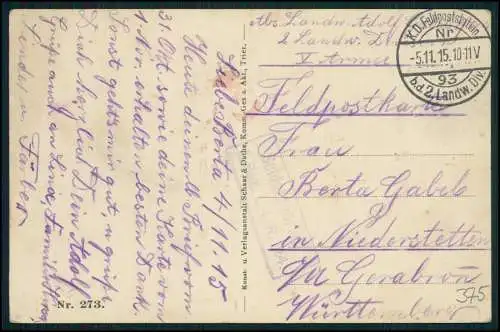 Liebe Berta 4/11.15
Heute deinen Brief vom
31. Okt. sowie deine Karte von
1 Nov. erhalten besten Dank.
Sonst geht's mir gut, u. grüße
Dich herzlich Dein Adolf
Grüße auch an Linde, Familie
Kinder u. Färber
Nr. 273.
Kunst- u. Verlagsanstalt Schaar & Dathe, Komm.-Ges. a. Akt., Trier.
Abs. Landw. Adolf
2 Landw. Div
V Armee
K.D. Feldpoststation
Nr
-5.11.15.10-11V
93
b.d. 2. Landw. Div.
Feldpostkarte
Frau
Berta Gabel
in Niederstetten
O/A Gerabronn
Württemberg
375